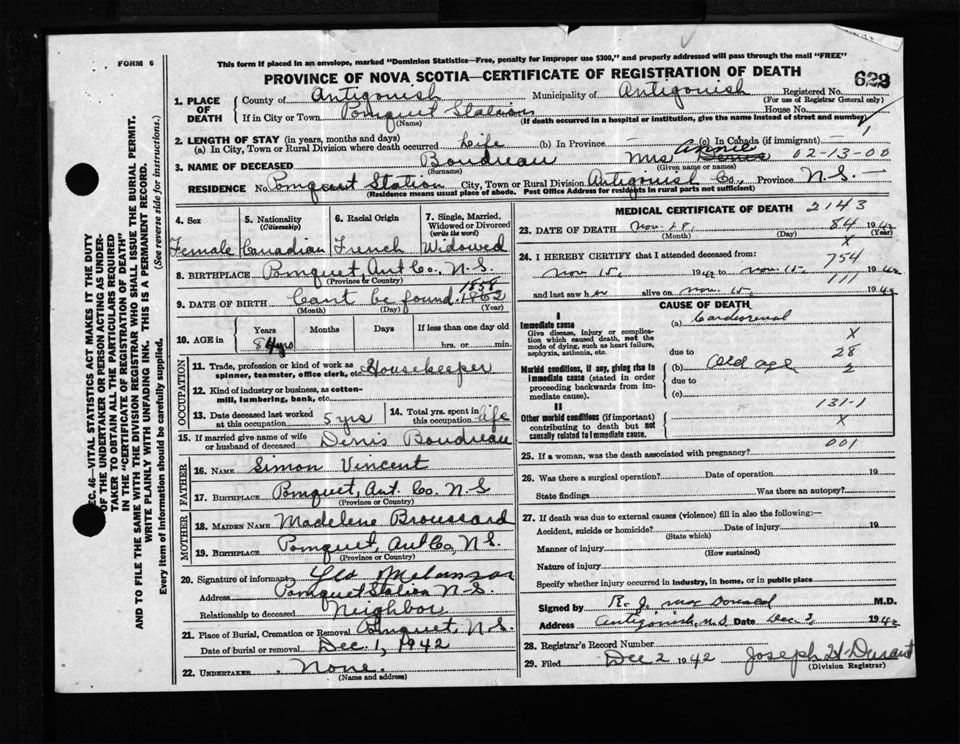 FORM 6
This form if placed in an envelope, marked "Dominion Statistics—Free, penalty for improper use $300," and properly addressed will pass through the mail "FREE"
PROVINCE OF NOVA SCOTIA—CERTIFICATE OF REGISTRATION OF DEATH
1. PLACE OF DEATH
County of Antigonish Municipality of Antigonish Registered No.
(For use of Registrar General only)
If in City or Town Pomquet Station House No.
(Name) (If death occurred in a hospital or institution, give the name instead of street and number)
2. LENGTH OF STAY (in years, months and days)
(a) In City, Town or Rural Division where death occurred Life (b) In Province (c) In Canada (if immigrant)
3. NAME OF DECEASED Boudreau Mrs Annie Denis 02-13-00
(Surname) (Given name or names)
RESIDENCE No. Pomquet Station City, Town or Rural Division Antigonish Co., Province N.S.
(Residence means usual place of abode. Post Office Address for residents in rural parts not sufficient)
4. Sex Female
5. Nationality (Citizenship) Canadian
6. Racial Origin French
7. Single, Married, Widowed or Divorced (write the word) Widowed
8. BIRTHPLACE Pomquet Ant Co., N.S.
(Province or Country)
1858
9. DATE OF BIRTH Can't be found. 1862
(Month) (Day) (Year)
10. AGE in Years Months Days If less than one day old
84 yrs hrs. or min.
OCCUPATION
11. Trade, profession or kind of work as spinner, teamster, office clerk, etc. Housekeeper
12. Kind of industry or business, as cotton-mill, lumbering, bank, etc.
13. Date deceased last worked at this occupation 5 yrs
14. Total yrs. spent in this occupation life
15. If married give name of wife or husband of deceased Denis Boudreau
FATHER
16. NAME Simon Vincent
17. BIRTHPLACE Pomquet, Ant. Co. N.S
(Province or Country)
MOTHER
18. MAIDEN NAME Madelene Broussard
19. BIRTHPLACE Pomquet, Ant Co, N.S.
(Province or Country)
20. Signature of informant Geo Melanson
Address Pomquet Station N-S.
Relationship to deceased Neighbor
21. Place of Burial, Cremation or Removal Pomquet, N.S.
Date of burial or removal Dec 1, 1942
22. UNDERTAKER None.
(Name and address)
MEDICAL CERTIFICATE OF DEATH 2143
23. DATE OF DEATH Nov 84 1942
(Month) (Day) (Year)
X
24. I HEREBY CERTIFY that I attended deceased from: 754
Nov 15, 1942 to Nov 1942
111
and last saw her alive on Nov 15, 1942
CAUSE OF DEATH
I
Immediate cause (a) Cardiorenal
Give disease, injury or complication which caused death, not the mode of dying, such as heart failure, asphyxia, asthenia, etc.
X
due to 28
Morbid conditions, if any, giving rise to immediate cause (stated in order proceeding backwards from immediate cause). (b) Old age 2
due to
(c)
II 131-1
Other morbid conditions (if important) contributing to death but not causally related to immediate cause. X
001
25. If a woman, was the death associated with pregnancy?
26. Was there a surgical operation? Date of operation 19
State findings Was there an autopsy?
27. If death was due to external causes (violence) fill in also the following:—
Accident, suicide or homicide? Date of injury 19
(State which)
Manner of injury
(How sustained)
Nature of injury
Specify whether injury occurred in industry, in home, or in public place
Signed by R. J. MacDonald M.D.
Address Antigonish, N.S Date Dec 3, 1942
28. Registrar's Record Number
29. Filed Dec 2 1942 Joseph H Durant
(Division Registrar)
SEC. 46—VITAL STATISTICS ACT MAKES IT THE DUTY
OF THE UNDERTAKER OR PERSON ACTING AS UNDER-
TAKER TO OBTAIN ALL THE PARTICULARS REQUIRED
IN THE "CERTIFICATE OF REGISTRATION OF DEATH"
AND TO FILE THE SAME WITH THE DIVISION REGISTRAR WHO SHALL ISSUE THE BURIAL PERMIT.
WRITE PLAINLY WITH UNFADING INK. THIS IS A PERMANENT RECORD.
Every item of information should be carefully supplied. (See reverse side for instructions.)